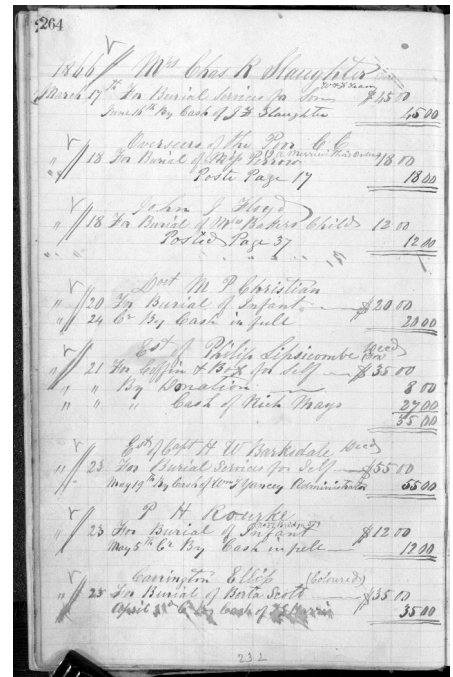 264
1866 Mrs Chas R Slaughter
March 17th For Burial Services for Son $45 00
June 16th By Cash of J F Slaughter 45 00
Overseers of the Poor C C
" 18 For Burial of Miss Perrow 18 00
Posted Page 17 18 00
John J Floyd
" 18 For Burial of Mrs Bakers Child 12 00
Posted Page 37 12 00
Doct M P Christian
" 20 For Burial of Infant $20 00
" 24 Cr By Cash in full 20 00
Est of Philip Lipsicombe Decd
" 21 For Coffin & Box for Self $35 00
" " By Donation 8 00
" " " Cash of Rich Mays 27 00
35 00
Est of Capt H W Barksdale Decd
" 23 For Burial Services for Self $55 00
May 19th By Cash of Wm T Yancey Administrator 55 00
P H Rourke
" 23 For Burial of Infant $12 00
May 5th Cr By Cash in full 12 00
Carrington Ellis (Coloured)
" 25 For Burial of Berta Scott $35 00
April Cr By Cash of 35 00
232